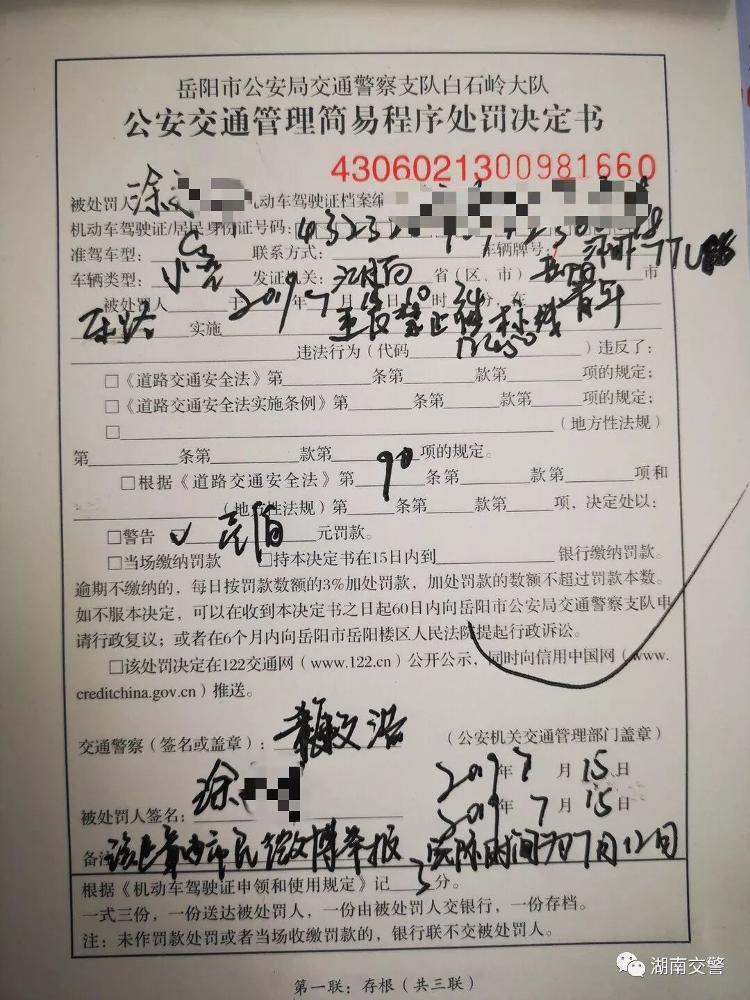 岳阳市公安局交通警察支队白石岭大队
公安交通管理简易程序处罚决定书
4306021300981660
被处罚人 涂 机动车驾驶证档案编
机动车驾驶证/居民身份证号码：43232
准驾车型： 联系方式： 车辆牌号：
车辆类型：小客 发证机关：湖南 省（区、市）岳阳 市
被处罚人 于 2019 年 7 月 15 日 10 时 分，在 青年
东路 实施 违反禁止标线
违法行为（代码 ）违反了：
□《道路交通安全法》第 条第 款第 项的规定；
□《道路交通安全法实施条例》第 条第 款第 项的规定；
□ （地方性法规）
第 条第 款第 项的规定。
□根据《道路交通安全法》第 90 条第 款第 项和
（地方性法规）第 条第 款第 项，决定处以：
□警告 ✓ 壹佰 元罚款。
□当场缴纳罚款 □持本决定书在15日内到 银行缴纳罚款。
逾期不缴纳的，每日按罚款数额的3%加处罚款，加处罚款的数额不超过罚款本数。
如不服本决定，可以在收到本决定书之日起60日内向岳阳市公安局交通警察支队申
请行政复议；或者在6个月内向岳阳市岳阳楼区人民法院提起行政诉讼。
□该处罚决定在122交通网（www.122.cn）公开公示，同时向信用中国网（www.
creditchina.gov.cn）推送。
交通警察（签名或盖章）： （公安机关交通管理部门盖章）
2019 年 7 月 15 日
被处罚人签名：涂 2019 年 7 月 15 日
备注 市民微博举报 实际时间为7月12日
根据《机动车驾驶证申领和使用规定》记 3 分。
一式三份，一份送达被处罚人，一份由被处罚人交银行，一份存档。
注：未作罚款处罚或者当场收缴罚款的，银行联不交被处罚人。
第一联：存根（共三联）
湖南交警